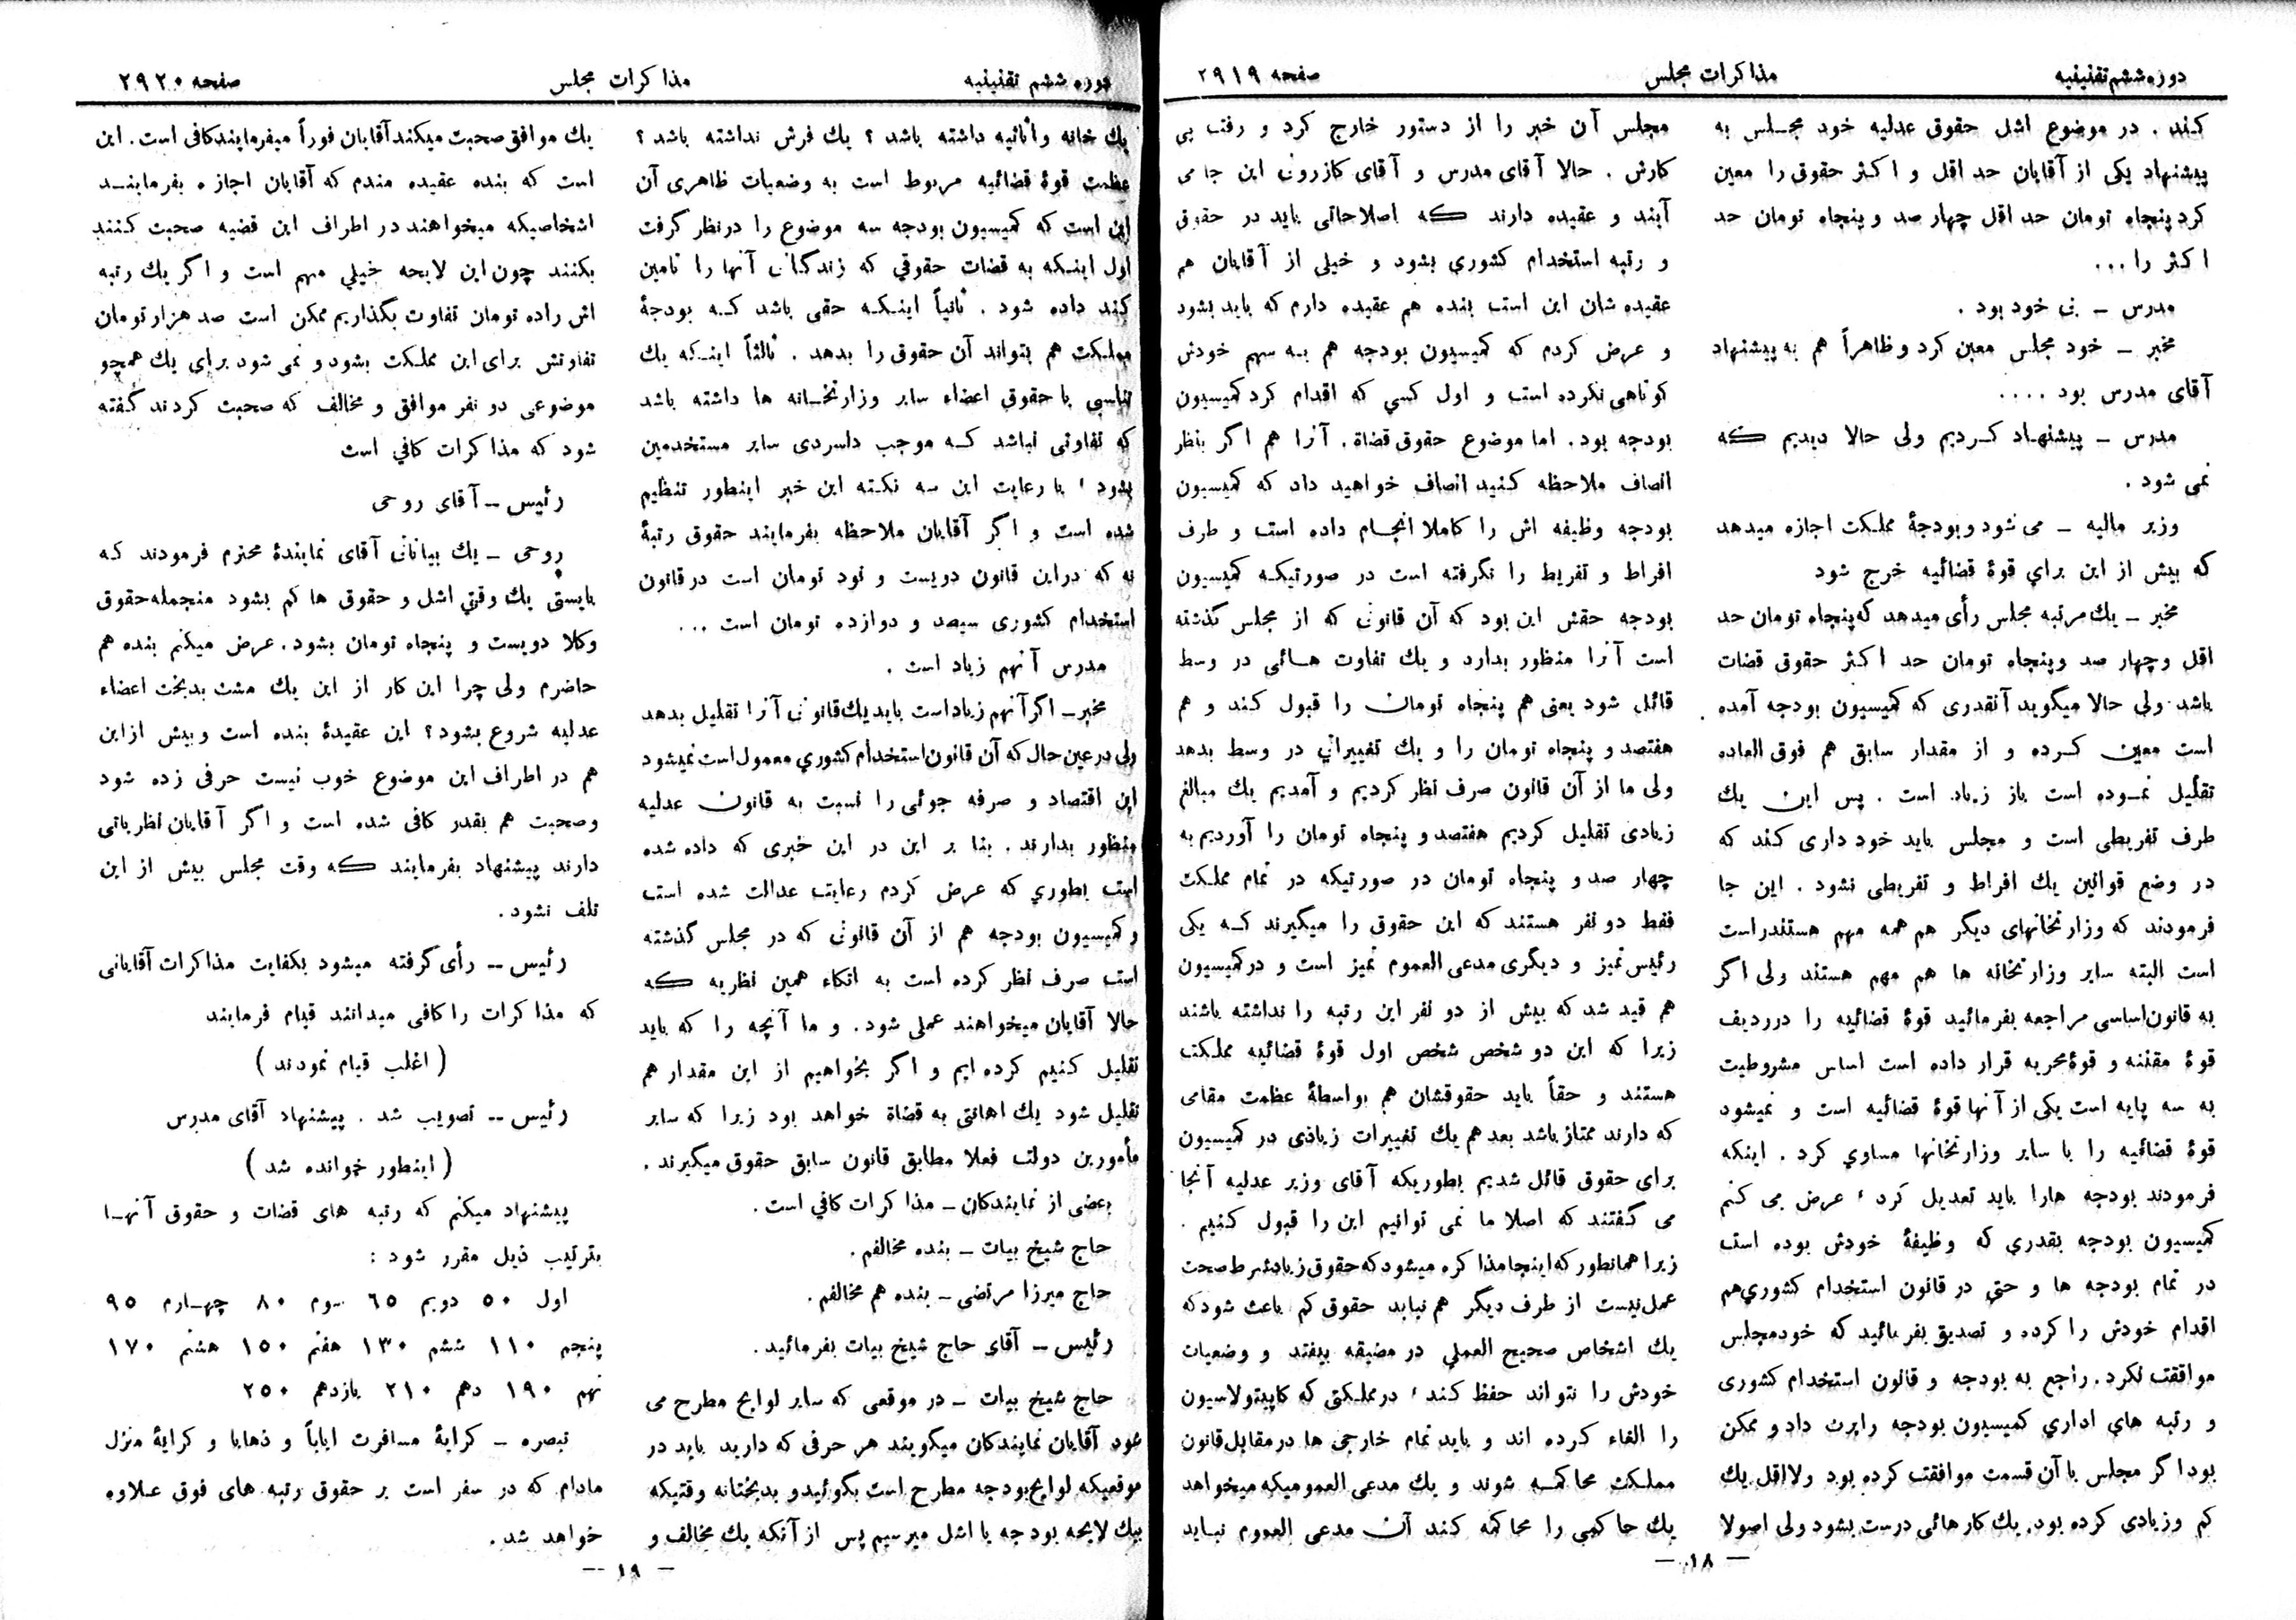 دوره ششم تقنینیه
مذاکرات مجلس
صفحه ۲۹۱۹
کنند . در موضوع اشل حقوق عدلیه خود مجلس به
پیشنهاد یکی از آقایان حد اقل و اکثر حقوق را معین
کرد پنجاه تومان حد اقل چهار صد و پنجاه تومان حد
اکثر را ...
مدرس – بی خود بود .
مخبر – خود مجلس معین کرد و ظاهراً هم به پیشنهاد
آقای مدرس بود ....
مدرس – پیشنهاد کردیم ولی حالا دیدیم که
نمی شود .
وزیر مالیه – می شود و بودجهٔ مملکت اجازه میدهد
که بیش از این برای قوهٔ قضائیه خرج شود
مخبر – یك مرتبه مجلس رأی میدهد که پنجاه تومان حد
اقل و چهار صد و پنجاه تومان حد اکثر حقوق قضات
باشد . ولی حالا میگوید آنقدری که کمیسیون بودجه آمده
است معین کرده و از مقدار سابق هم فوق العاده
تقلیل نموده است باز زیاد است . پس این یك
طرف تفریطی است و مجلس باید خود داری کند که
در وضع قوانین یك افراط و تفریطی نشود . این جا
فرمودند که وزارتخانهای دیگر هم همه مهم هستند راست
است البته سایر وزارتخانه ها هم مهم هستند ولی اگر
به قانون اساسی مراجعه بفرمائید قوهٔ قضائیه را در ردیف
قوهٔ مقننه و قوهٔ مجریه قرار داده است اساس مشروطیت
به سه پایه است یکی از آنها قوهٔ قضائیه است و نمیشود
قوهٔ قضائیه را با سایر وزارتخانها مساوی کرد . اینکه
فرمودند بودجه هارا باید تعدیل کرد ، عرض می کنم
کمیسیون بودجه بقدری که وظیفهٔ خودش بوده است
در تمام بودجه ها و حتی در قانون استخدام کشوری هم
اقدام خودش را کرده و تصدیق بفرمائید که خود مجلس
موافقت نکرد . راجع به بودجه و قانون استخدام کشوری
و رتبه های اداری کمیسیون بودجه راپرت داد و ممکن
بود اگر مجلس با آن قسمت موافقت کرده بود ولااقل یك
کم وزیادی کرده بود . یك کار هائی درست بشود ولی اصولا
مجلس آن خبر را از دستور خارج کرد و رفت پی
کارش . حالا آقای مدرس و آقای کازرونی این جا می
آیند و عقیده دارند که اصلاحاتی باید در حقوق
و رتبه استخدام کشوری بشود و خیلی از آقایان هم
عقیده شان این است بنده هم عقیده دارم که باید بشود
و عرض کردم که کمیسیون بودجه هم به سهم خودش
کوتاهی نکرده است و اول کسی که اقدام کرد کمیسیون
بودجه بود . اما موضوع حقوق قضاة . آنرا هم اگر بنظر
انصاف ملاحظه کنید انصاف خواهید داد که کمیسیون
بودجه وظیفه اش را کاملا انجام داده است و طرف
افراط و تفریط را نگرفته است در صورتیکه کمیسیون
بودجه حقش این بود که آن قانونی که از مجلس گذشته
است آنرا منظور بدارد و یك تفاوت هائی در وسط
قائل شود یعنی هم پنجاه تومان را قبول کند و هم
هفتصد و پنجاه تومان را و یك تغییراتی در وسط بدهد
ولی ما از آن قانون صرف نظر کردیم و آمدیم یك مبالغ
زیادی تقلیل کردیم هفتصد و پنجاه تومان را آوردیم به
چهار صد و پنجاه تومان در صورتیکه در تمام مملکت
فقط دو نفر هستند که این حقوق را میگیرند که یکی
رئیس تمیز و دیگری مدعی العموم تمیز است و در کمیسیون
هم قید شد که بیش از دو نفر این رتبه را نداشته باشند
زیرا که این دو شخص شخص اول قوهٔ قضائیه مملکت
هستند و حقاً باید حقوقشان هم بواسطهٔ عظمت مقامی
که دارند ممتاز باشد بعد هم یك تغییرات زیادی در کمیسیون
برای حقوق قائل شدیم بطوریکه آقای وزیر عدلیه آنجا
می گفتند که اصلا ما نمی توانیم این را قبول کنیم .
زیرا همانطور که اینجا مذاکره میشود که حقوق زیاد شرط صحت
عمل نیست از طرف دیگر هم نباید حقوق کم باعث شود که
یك اشخاص صحیح العملی در مضیقه بیفتد و وضعیات
خودش را نتواند حفظ کند ، در مملکتی که کاپیتولاسیون
را الغاء کرده اند و باید تمام خارجی ها در مقابل قانون
مملکت محاکمه شوند و یك مدعی العمومیکه میخواهد
یك حاکمی را محاکمه کند آن مدعی العموم نباید
— ۱۸ —
دوره ششم تقنینیه
مذاکرات مجلس
صفحه ۲۹۲۰
یك خانه و اثاثیه داشته باشد ؟ یك فرش نداشته باشد ؟
عظمت قوهٔ قضائیه مربوط است به وضعیات ظاهری آن
این است که کمیسیون بودجه سه موضوع را در نظر گرفت
اول اینکه به قضات حقوقی که زندگانی آنها را تامین
کند داده شود . ثانیاً اینکه حقی باشد که بودجهٔ
مملکت هم بتواند آن حقوق را بدهد . ثالثاً اینکه یك
تناسبی با حقوق اعضاء سایر وزارتخانه ها داشته باشد
که تفاوتی نباشد که موجب دلسردی سایر مستخدمین
بشود ، با رعایت این سه نکته این خبر اینطور تنظیم
شده است و اگر آقایان ملاحظه بفرمایند حقوق رتبهٔ
نه که در این قانون دویست و نود تومان است در قانون
استخدام کشوری سیصد و دوازده تومان است ...
مدرس آنهم زیاد است .
مخبر – اگر آنهم زیاد است باید یك قانونی آنرا تقلیل بدهد
ولی در عین حال که آن قانون استخدام کشوری معمول است نمیشود
این اقتصاد و صرفه جوئی را نسبت به قانون عدلیه
منظور بدارند . بنا بر این در این خبری که داده شده
است بطوری که عرض کردم رعایت عدالت شده است
و کمیسیون بودجه هم از آن قانونی که در مجلس گذشته
است صرف نظر کرده است به اتکاء همین نظریه که
حالا آقایان میخواهند عملی شود . و ما آنچه را که باید
تقلیل کنیم کرده ایم و اگر بخواهیم از این مقدار هم
تقلیل شود یك اهانتی به قضاة خواهد بود زیرا که سایر
مأمورین دولت فعلا مطابق قانون سابق حقوق میگیرند .
بعضی از نمایندگان – مذاکرات کافی است .
حاج شیخ بیات – بنده مخالفم .
حاج میرزا مرتضی – بنده هم مخالفم .
رئیس – آقای حاج شیخ بیات بفرمائید .
حاج شیخ بیات – در موقعی که سایر لوایح مطرح می
شود آقایان نمایندگان میگویند هر حرفی که دارید باید در
موقعیکه لوایح بودجه مطرح است بگوئید و بدبختانه وقتیکه
بیك لایحه بودجه یا اشل میرسیم پس از آنکه یك مخالف و
یك موافق صحبت میکند آقایان فوراً میفرمایند کافی است . این
است که بنده عقیده مندم که آقایان اجازه بفرمایند
اشخاصیکه میخواهند در اطراف این قضیه صحبت کنند
بکنند چون این لایحه خیلی مهم است و اگر یك رتبه
اش را ده تومان تفاوت بگذاریم ممکن است صد هزار تومان
تفاوتش برای این مملکت بشود و نمی شود برای یك همچو
موضوعی دو نفر موافق و مخالف که صحبت کردند گفته
شود که مذاکرات کافی است
رئیس – آقای روحی
روحی – یك بیاناتی آقای نمایندهٔ محترم فرمودند که
بایستی یك وقتی اشل و حقوق ها کم بشود منجمله حقوق
وکلا دویست و پنجاه تومان بشود . عرض میکنم بنده هم
حاضرم ولی چرا این کار از این یك مشت بدبخت اعضاء
عدلیه شروع بشود ؟ این عقیدهٔ بنده است و بیش از این
هم در اطراف این موضوع خوب نیست حرفی زده شود
و صحبت هم بقدر کافی شده است و اگر آقایان نظریاتی
دارند پیشنهاد بفرمایند که وقت مجلس بیش از این
تلف نشود .
رئیس – رأی گرفته میشود بکفایت مذاکرات آقایانی
که مذاکرات را کافی میدانند قیام فرمایند
( اغلب قیام نمودند )
رئیس – تصویب شد . پیشنهاد آقای مدرس
( اینطور خوانده شد )
پیشنهاد میکنم که رتبه های قضات و حقوق آنها
بترتیب ذیل مقرر شود :
اول ۵۰ دویم ۶۵ سوم ۸۰ چهارم ۹۵
پنجم ۱۱۰ ششم ۱۳۰ هفتم ۱۵۰ هشتم ۱۷۰
نهم ۱۹۰ دهم ۲۱۰ یازدهم ۲۵۰
تبصره – کرایهٔ مسافرت ایاباً و ذهابا و کرایهٔ منزل
مادام که در سفر است بر حقوق رتبه های فوق علاوه
خواهد شد .
— ۱۹ —